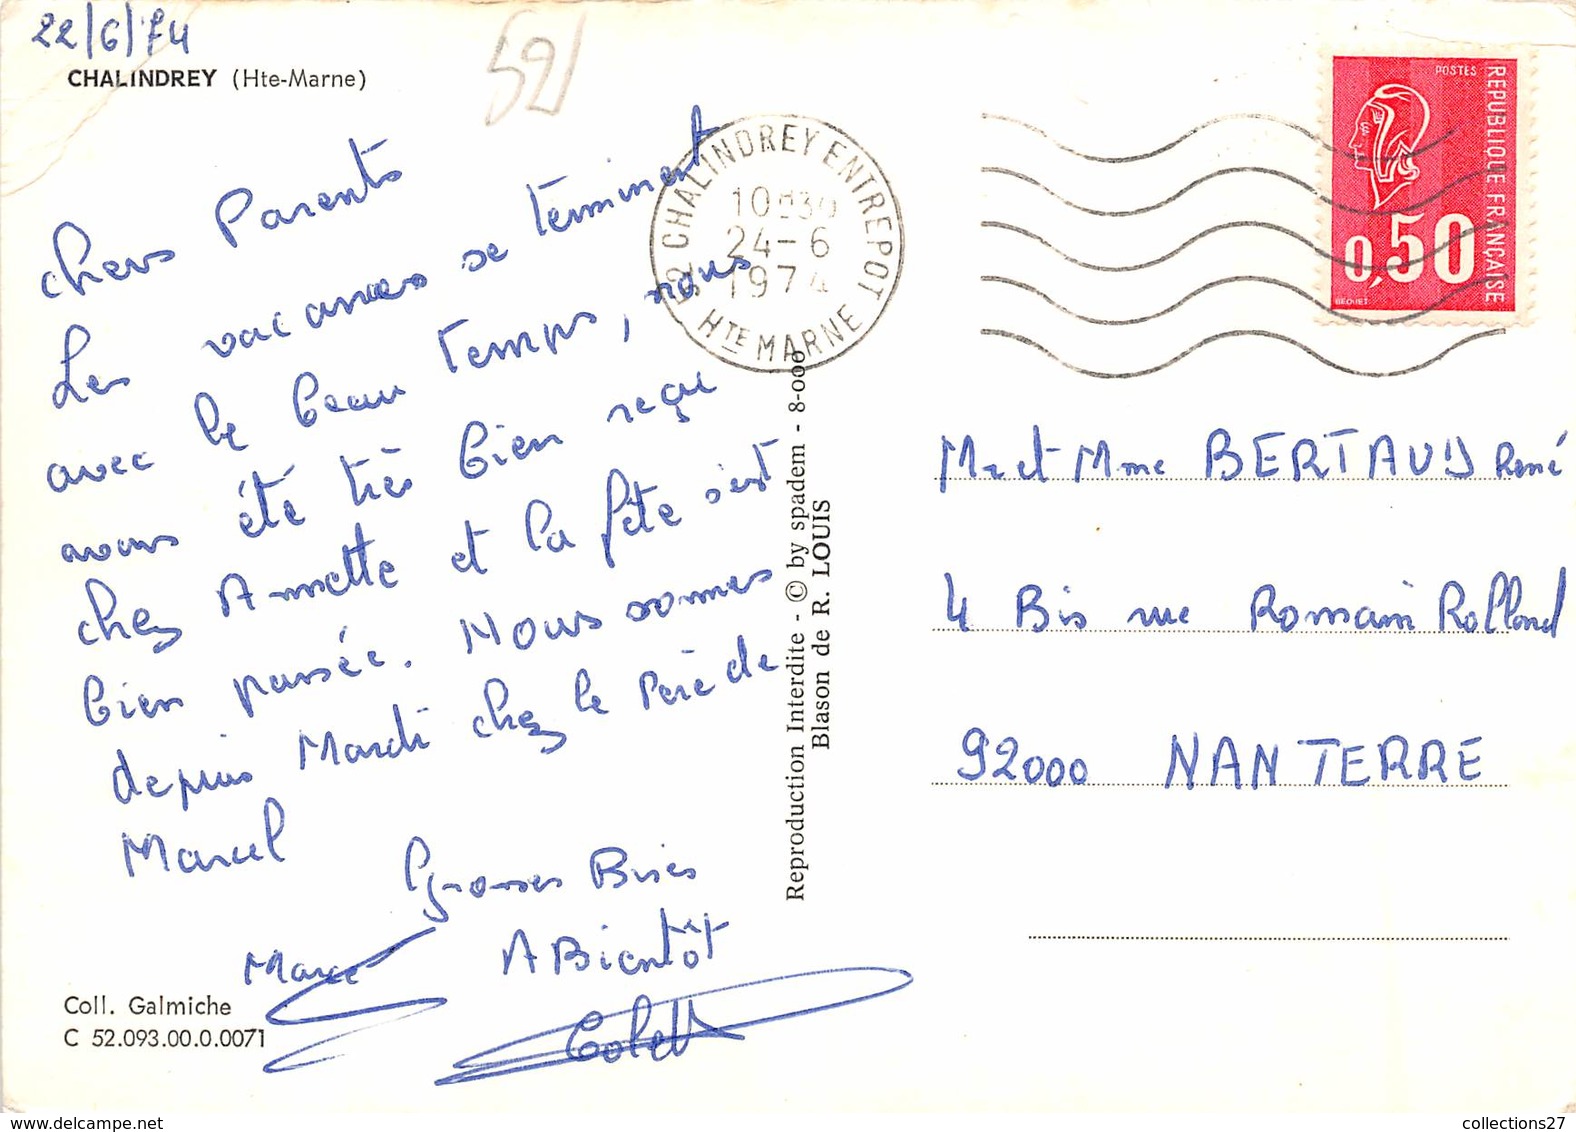 22/6/74
CHALINDREY (Hte-Marne)
52
chers Parents
Les vacances se terminent
avec le beau temps, nous
avons été très bien reçu
chez Annette et la fête s'est
bien passée. Nous sommes
depuis Mardi chez le Père de
Marcel
Grosses Bises
A Bientôt
Marcel
Colette
Coll. Galmiche
C 52.093.00.0.0071
52 CHALINDREY ENTREPOT
10H30
24-6
1974
HTE MARNE
Reproduction Interdite - © by spadem - 8-000
Blason de R. LOUIS
POSTES
REPUBLIQUE FRANÇAISE
0,50
BEQUET
Mr et Mme BERTAUD René
4 Bis rue Romain Rolland
92000 NANTERRE
www.delcampe.net
collections27